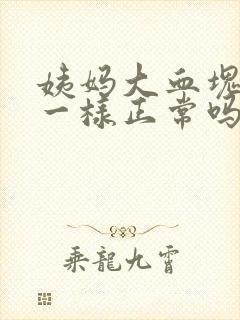 姨妈大血塊
一樣正常吗
乘龍九霄